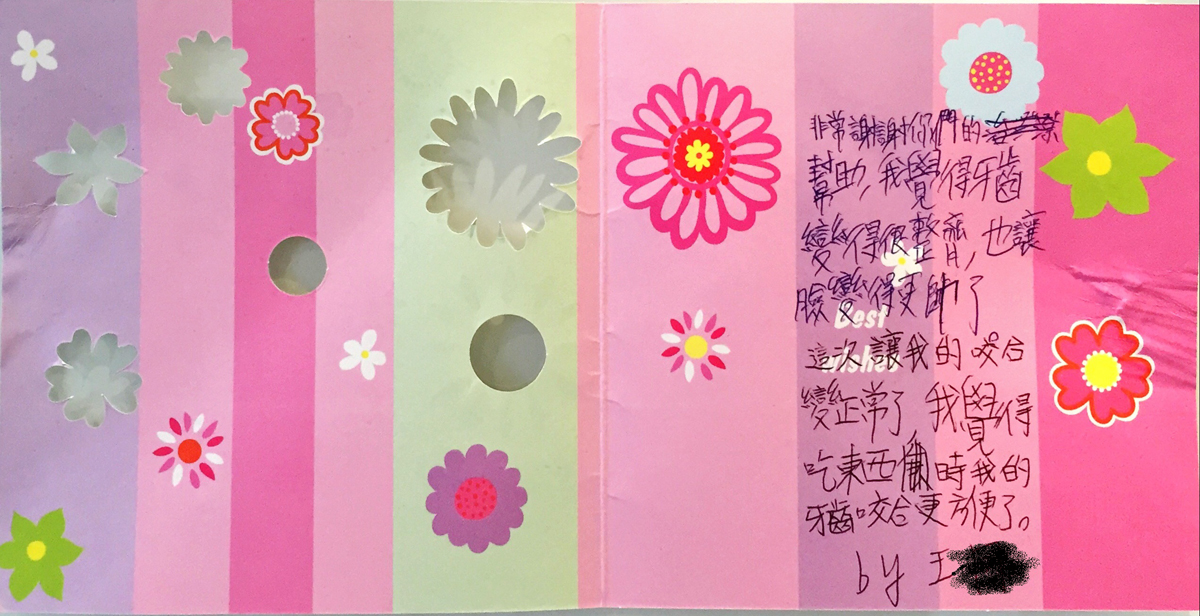 非常謝謝你們的
幫助，我覺得牙齒
變得很整齊，也讓
臉變得更帥了
Best
Wishes
這次讓我的咬合
變正常了 我覺得
吃東西 時我的
牙齒咬合更方便了。
by 王